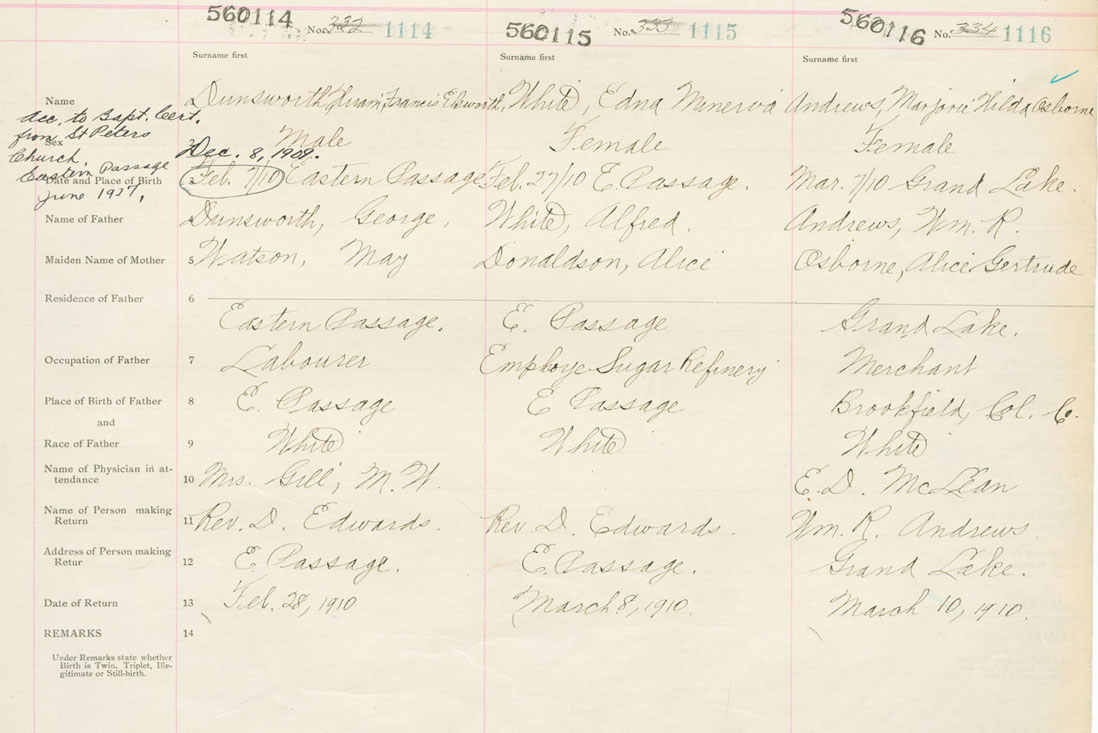 560114 No. 332 1114 560115 No. 333 1115 560116 No. 334 1116
Surname first Surname first Surname first
Name Dunsworth, Hiram Francis Elsworth, White, Edna Minerva Andrews, Marjorie Hilda Osborne
Acc. to Bapt. Cert.
from St Peters
Church,
Eastern Passage
June 1927,
Sex Male Female Female
Dec. 8, 1909.
Date and Place of Birth Feb. 7/10 Eastern Passage Feb. 27/10 E. Passage. Mar. 7/10 Grand Lake.
Name of Father Dunsworth, George, White, Alfred. Andrews, Wm. R.
Maiden Name of Mother 5 Watson, May Donaldson, Alice Osborne, Alice Gertrude
Residence of Father 6
Eastern Passage. E. Passage Grand Lake.
Occupation of Father 7 Labourer Employe Sugar Refinery Merchant
Place of Birth of Father 8 E. Passage E Passage Brookfield, Col. C.
and
Race of Father 9 White White White
Name of Physician in at-
tendance 10 Mrs. Gill, M. W. E. D. McLean
Name of Person making
Return 11 Rev. D. Edwards. Rev. D. Edwards. Wm. R. Andrews.
Address of Person making
Retur 12 E. Passage. E. Passage. Grand Lake.
Date of Return 13 Feb. 28, 1910 March 8, 1910. March 10, 1910.
REMARKS 14
Under Remarks state whether
Birth is Twin, Triplet, Ille-
gitimate or Still-birth.